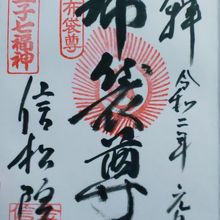 奉拝
令和二年 元
布袋尊
布袋尊
子七福神
信松院